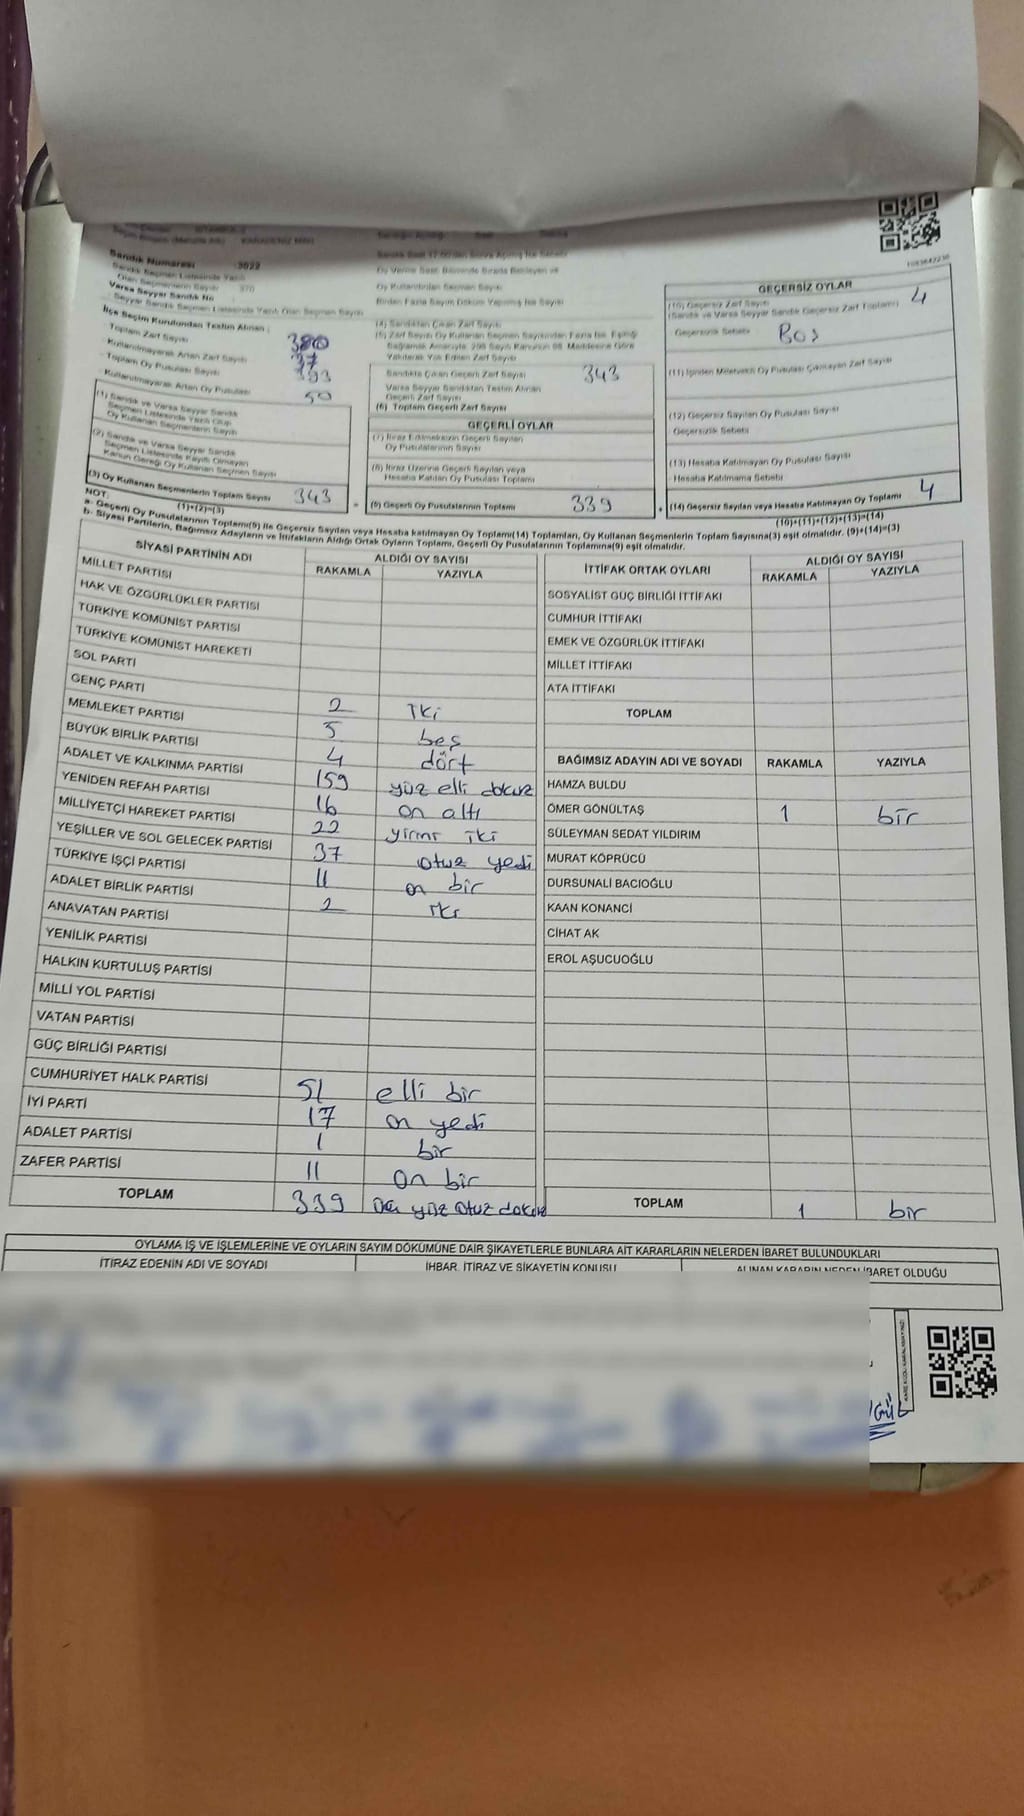 Sandık Numarası 3622
Sandık Seçmen Listesinde Yazılı
Olan Seçmenlerin Sayısı 370
Varsa Seyyar Sandık No
Seyyar Sandık Seçmen Listesinde Yazılı Olan Seçmen Sayısı
İlçe Seçim Kurulundan Teslim Alınan :
- Toplam Zarf Sayısı 380
- Kullanılmayarak Artan Zarf Sayısı 37
- Toplam Oy Pusulası Sayısı 393
- Kullanılmayarak Artan Oy Pusulası 50
(1) Sandık ve Varsa Seyyar Sandık
Seçmen Listesinde Yazılı Olup
Oy Kullanan Seçmenlerin Sayısı
(2) Sandık ve Varsa Seyyar Sandık
Seçmen Listesinde Kayıtlı Olmayan
Kanun Gereği Oy Kullanan Seçmen Sayısı
(3) Oy Kullanan Seçmenlerin Toplam Sayısı 343
(1)+(2)=(3)
Oy Kullandırılan Seçmen Sayısı
Birden Fazla Sayım Döküm Yapılmış İse Sayısı
(4) Sandıktan Çıkan Zarf Sayısı
(5) Zarf Sayısı Oy Kullanan Seçmen Sayısından Fazla İse, Eşitliği
Sağlamak Amacıyla, 298 Sayılı Kanunun 98. Maddesine Göre
Yakılarak Yok Edilen Zarf Sayısı
Sandıkta Çıkan Geçerli Zarf Sayısı 343
Varsa Seyyar Sandıktan Teslim Alınan
Geçerli Zarf Sayısı
(6) Toplam Geçerli Zarf Sayısı
GEÇERLİ OYLAR
(7) İtiraz Edilmeksizin Geçerli Sayılan
Oy Pusulalarının Sayısı
(8) İtiraz Üzerine Geçerli Sayılan veya
Hesaba Katılan Oy Pusulası Toplamı
= (9) Geçerli Oy Pusulalarının Toplamı 339
GEÇERSİZ OYLAR
(10) Geçersiz Zarf Sayısı 4
(Sandık ve Varsa Seyyar Sandık Geçersiz Zarf Toplamı)
Geçersizlik Sebebi Boş
(11) İçinden Milletvekili Oy Pusulası Çıkmayan Zarf Sayısı
(12) Geçersiz Sayılan Oy Pusulası Sayısı
Geçersizlik Sebebi
(13) Hesaba Katılmayan Oy Pusulası Sayısı
Hesaba Katılmama Sebebi
+ (14) Geçersiz Sayılan veya Hesaba Katılmayan Oy Toplamı 4
(10)+(11)+(12)+(13)=(14)
NOT:
a- Geçerli Oy Pusulalarının Toplamı(9) ile Geçersiz Sayılan veya Hesaba katılmayan Oy Toplamı(14) Toplamları, Oy Kullanan Seçmenlerin Toplam Sayısına(3) eşit olmalıdır. (9)+(14)=(3)
b- Siyasi Partilerin, Bağımsız Adayların ve İttifakların Aldığı Ortak Oyların Toplamı, Geçerli Oy Pusulalarının Toplamına(9) eşit olmalıdır.
SİYASİ PARTİNİN ADI ALDIĞI OY SAYISI
RAKAMLA YAZIYLA
MİLLET PARTİSİ
HAK VE ÖZGÜRLÜKLER PARTİSİ
TÜRKİYE KOMÜNİST PARTİSİ
TÜRKİYE KOMÜNİST HAREKETİ
SOL PARTİ
GENÇ PARTİ
MEMLEKET PARTİSİ 2 iki
BÜYÜK BİRLİK PARTİSİ 5 beş
ADALET VE KALKINMA PARTİSİ 4 dört
YENİDEN REFAH PARTİSİ 159 yüz elli dokuz
MİLLİYETÇİ HAREKET PARTİSİ 16 on altı
YEŞİLLER VE SOL GELECEK PARTİSİ 22 yirmi iki
TÜRKİYE İŞÇİ PARTİSİ 37 otuz yedi
ADALET BİRLİK PARTİSİ 11 on bir
ANAVATAN PARTİSİ 2 iki
YENİLİK PARTİSİ
HALKIN KURTULUŞ PARTİSİ
MİLLİ YOL PARTİSİ
VATAN PARTİSİ
GÜÇ BİRLİĞİ PARTİSİ
CUMHURİYET HALK PARTİSİ 51 elli bir
İYİ PARTİ 17 on yedi
ADALET PARTİSİ 1 bir
ZAFER PARTİSİ 11 on bir
TOPLAM 339 üç yüz otuz dokuz
İTTİFAK ORTAK OYLARI ALDIĞI OY SAYISI
RAKAMLA YAZIYLA
SOSYALİST GÜÇ BİRLİĞİ İTTİFAKI
CUMHUR İTTİFAKI
EMEK VE ÖZGÜRLÜK İTTİFAKI
MİLLET İTTİFAKI
ATA İTTİFAKI
TOPLAM
BAĞIMSIZ ADAYIN ADI VE SOYADI RAKAMLA YAZIYLA
HAMZA BULDU
ÖMER GÖNÜLTAŞ 1 bir
SÜLEYMAN SEDAT YILDIRIM
MURAT KÖPRÜCÜ
DURSUNALİ BACIOĞLU
KAAN KONANCİ
CİHAT AK
EROL AŞUCUOĞLU
TOPLAM 1 bir
OYLAMA İŞ VE İŞLEMLERİNE VE OYLARIN SAYIM DÖKÜMÜNE DAİR ŞİKAYETLERLE BUNLARA AİT KARARLARIN NELERDEN İBARET BULUNDUKLARI
İTİRAZ EDENİN ADI VE SOYADI İHBAR, İTİRAZ VE ŞİKAYETİN KONUSU ALINAN KARARIN NEDEN İBARET OLDUĞU